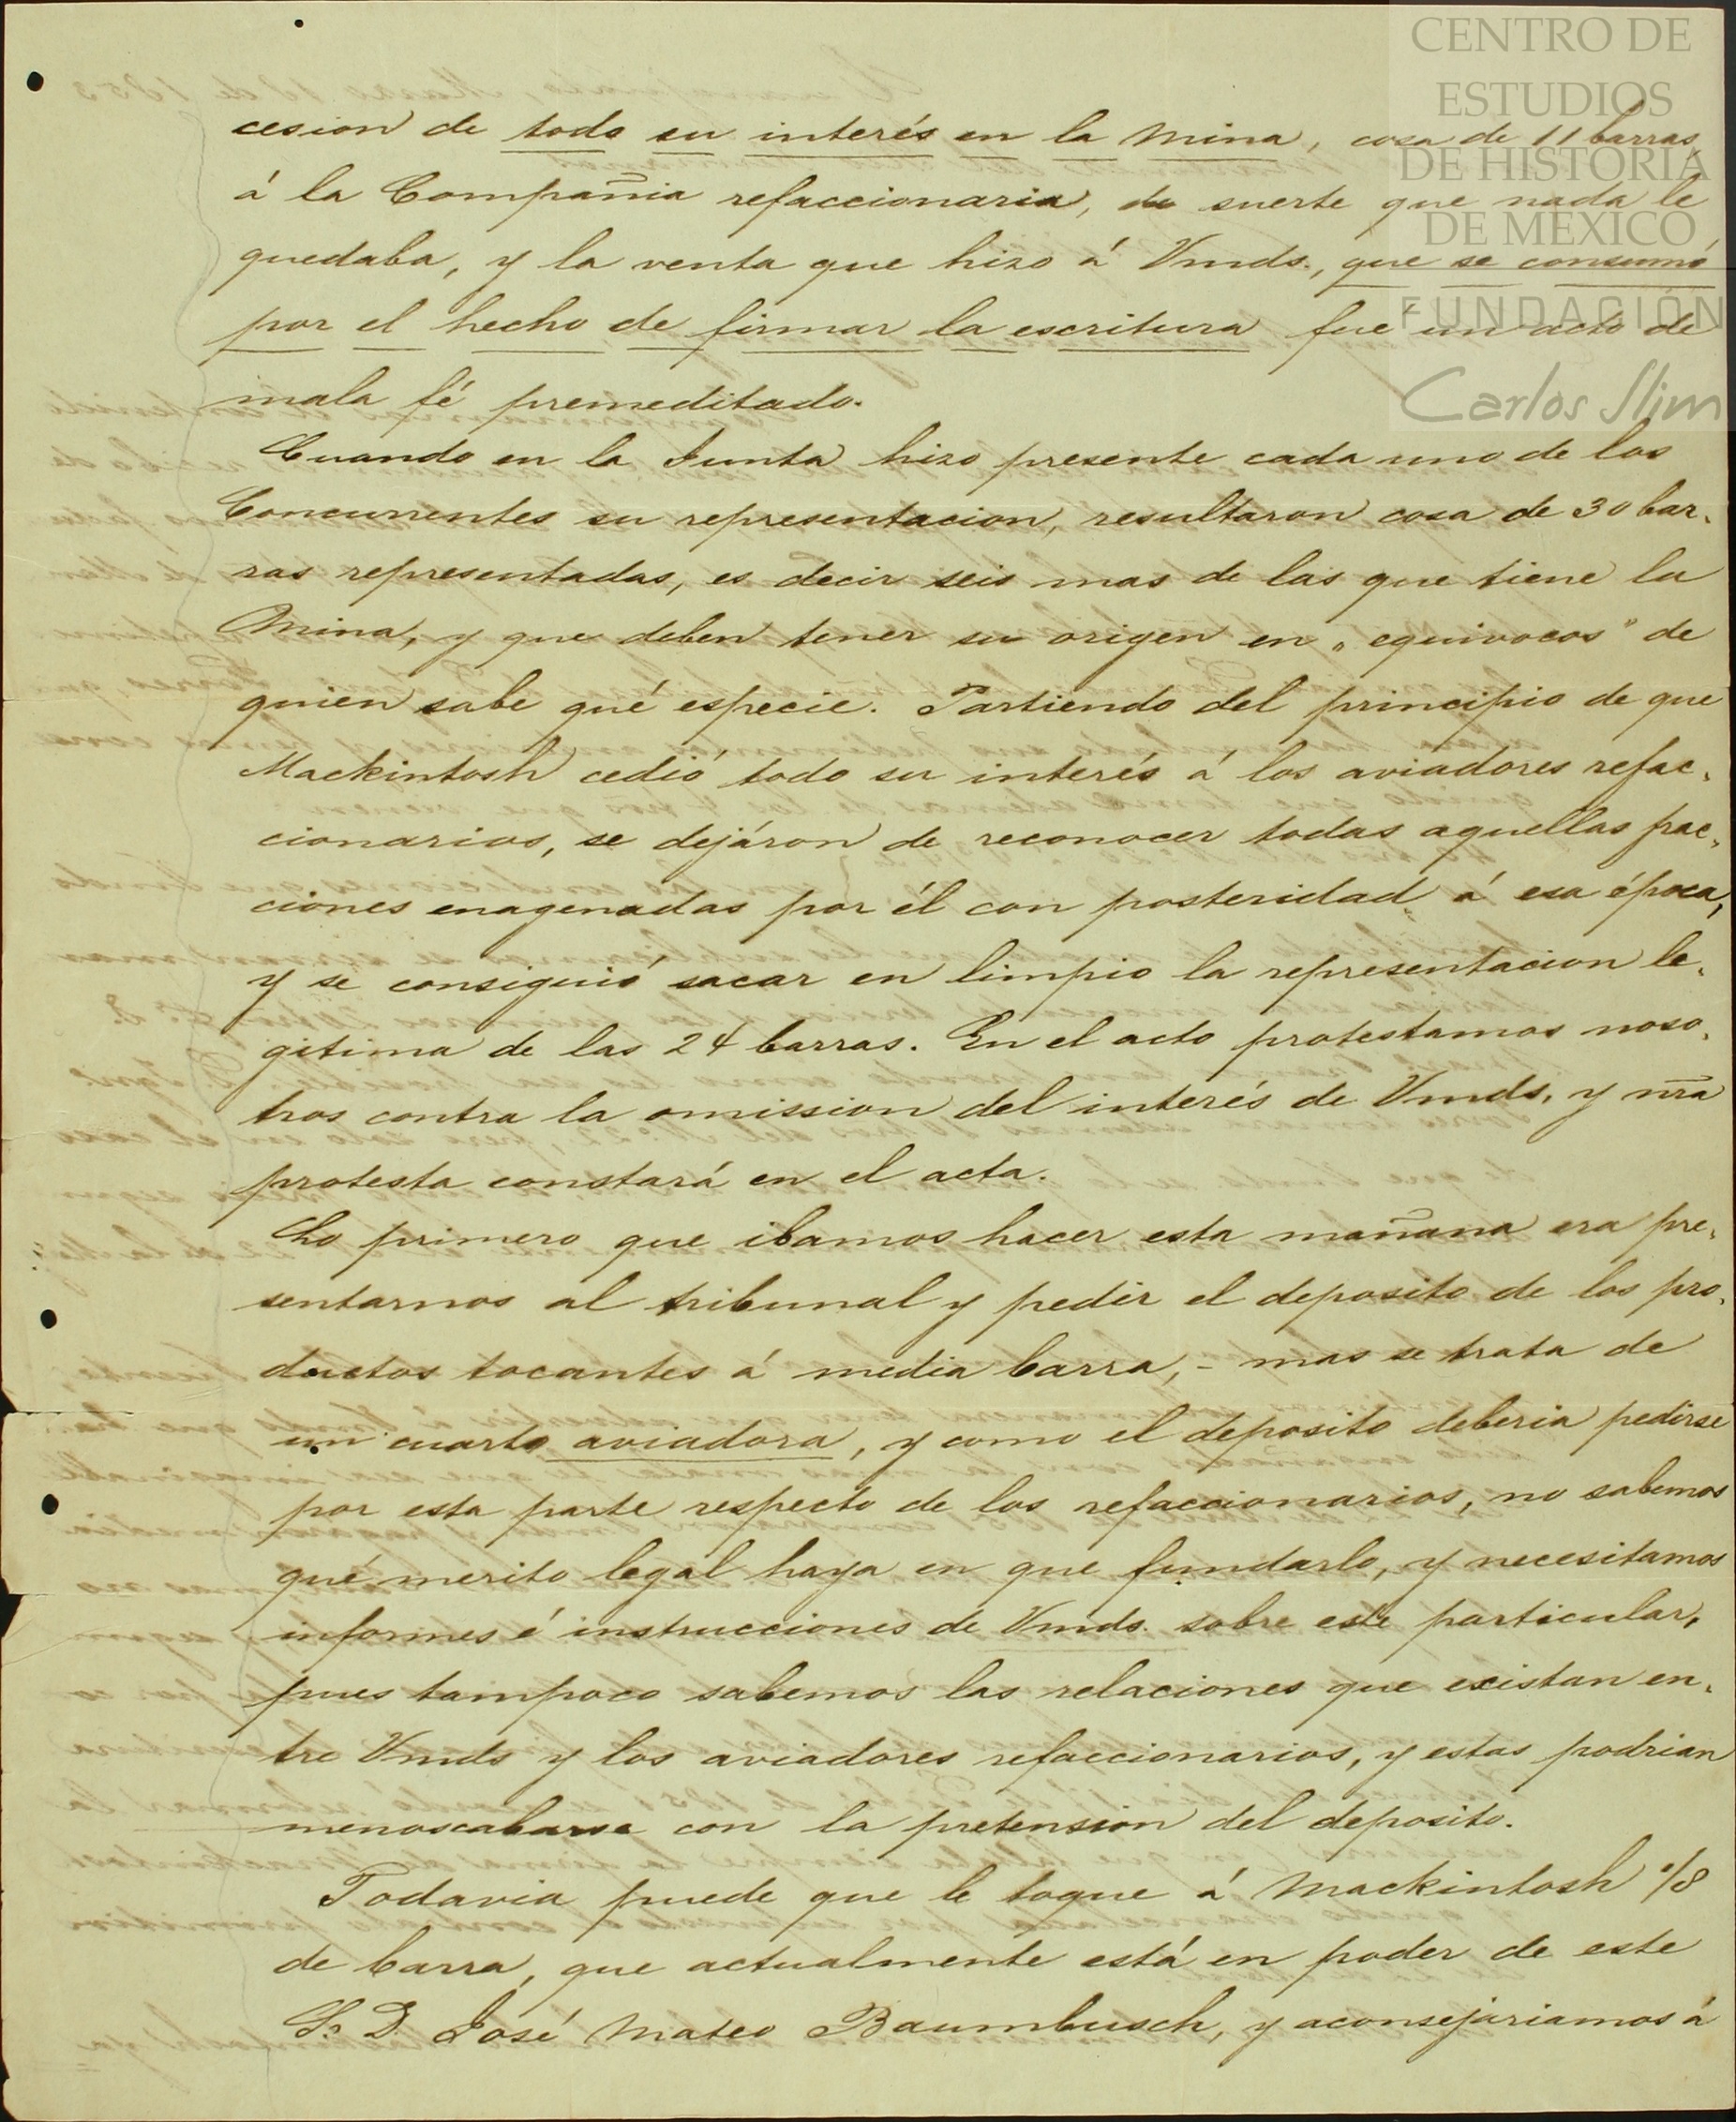 CENTRO DE
ESTUDIOS
DE HISTORIA
DE MÉXICO
FUNDACIÓN
Carlos Slim
cesion de todo su interés en la Mina, cosa de 11 barras,
á la Compañia refaccionaria, de suerte que nada le
quedaba, y la venta que hizo á Vmds., que se consumó
por el hecho de firmar la escritura fue un acto de
mala fé premeditado.
Cuando en la Junta hizo presente cada uno de los
Concurrentes su representacion, resultáron cosa de 30 bar-
ras representadas, es decir seis mas de las que tiene la
Mina, y que deben tener su origen en „equivocos” de
quien sabe qué especie. Partiendo del principio de que
Mackintosh cedió todo su interés á los aviadores refac-
cionarios, se dejáron de reconocer todas aquellas frac-
ciones enagenadas por él con posteridad á esa época,
y se consiguió sacar en limpio la representacion le-
gitima de las 24 barras. En el acto protestamos noso-
tros contra la omission del interés de Vmds. y nra
protesta constará en el acta.
Lo primero que ibamos hacer esta mañana era pre-
sentarnos al tribunal y pedir el deposito de los pro-
ductos tocantes á media barra, - mas se trata de
un cuarto aviadora, y como el deposito deberia pedirse
por esta parte respecto de los refaccionarios, no sabemos
qué merito legal haya en que fundarlo, y necesitamos
informes é instrucciones de Vmds. sobre este particular,
pues tampoco sabemos las relaciones que existan en-
tre Vmds y los aviadores refaccionarios, y estas podrian
menoscabarse con la pretension del deposito.
Todavia puede que le toque á Mackintosh 1/8
de barra, que actualmente está en poder de este
Sr. D. José Mateo Baumbusch, y aconsejariamos á